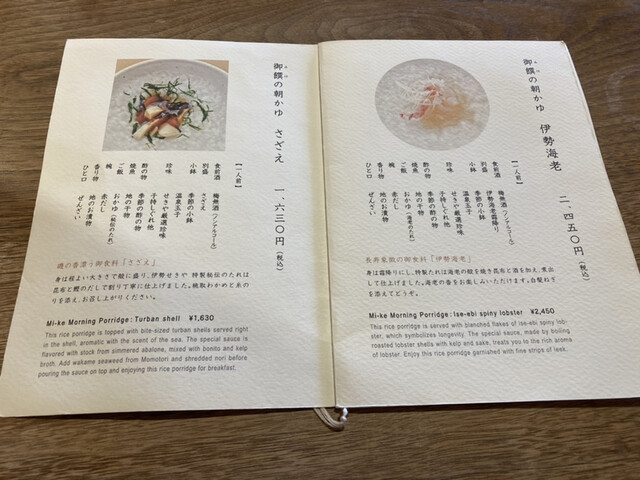 御饌の朝かゆ さざえ 一、六三〇円(税込)
みけ
【一人前】
食前酒 梅無酒(ノンアルコール)
別盛 さざえ
小鉢 季節の小鉢
温泉玉子
珍味 せきや厳選珍味
子持しぐれ他
酢の物 季節の酢の物
焼魚 地の干物
ご飯 おかゆ(秘伝のたれ)
椀 赤だし
香り物 地のお漬物
ひと口 ぜんざい
磯の香漂う御食料「さざえ」
身は程よい大きさで殻に盛り、伊勢せきや 特製秘伝のたれは
昆布と鰹のだしで割り丁寧に仕上げました。桃取わかめと糸の
りを添え、お召し上がりください。
Mi-ke Morning Porridge: Turban shell ¥1,630
This rice porridge is topped with bite-sized turban shells served right
in the shell, aromatic with the scent of the sea. The special sauce is
flavored with stock from simmered abalone, mixed with bonito and kelp
broth. Add wakame seaweed from Momotori and shredded nori before
pouring the sauce on top and enjoying this rice porridge for breakfast.
御饌の朝かゆ 伊勢海老 二、四五〇円(税込)
みけ
【一人前】
食前酒 梅無酒(ノンアルコール)
別盛 伊勢海老霜降り
小鉢 季節の小鉢
温泉玉子
珍味 せきや厳選珍味
子持しぐれ他
酢の物 季節の酢の物
焼魚 地の干物
ご飯 おかゆ(海老のたれ)
椀 赤だし
香り物 地のお漬物
ひと口 ぜんざい
長寿象徴の御食料「伊勢海老」
身は霜降りにし、特製たれは海老の殻を焼き昆布と酒を加え、煮出
して仕上げました。海老の香をお楽しみいただけます。白髪ねぎ
を添えてどうぞ。
Mi-ke Morning Porridge: Ise-ebi spiny lobster ¥2,450
This rice porridge is served with blanched flakes of Ise-ebi spiny lob-
ster, which symbolizes longevity. The special sauce, made by boiling
roasted lobster shells with kelp and sake, treats you to the rich aroma
of lobster. Enjoy this rice porridge garnished with fine strips of leek.